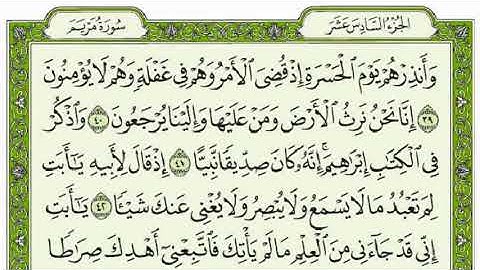 الجُزْءُ السَّادِسَ عَشَرَ
سُورَةُ مَرْيَم
وَأَنذِرْهُمْ يَوْمَ ٱلْحَسْرَةِ إِذْ قُضِيَ ٱلْأَمْرُ وَهُمْ فِي غَفْلَةٍ وَهُمْ لَا يُؤْمِنُونَ
٣٩ إِنَّا نَحْنُ نَرِثُ ٱلْأَرْضَ وَمَنْ عَلَيْهَا وَإِلَيْنَا يُرْجَعُونَ ٤٠ وَٱذْكُرْ
فِي ٱلْكِتَٰبِ إِبْرَٰهِيمَ ۚ إِنَّهُۥ كَانَ صِدِّيقًا نَّبِيًّا ٤١ إِذْ قَالَ لِأَبِيهِ يَٰٓأَبَتِ
لِمَ تَعْبُدُ مَا لَا يَسْمَعُ وَلَا يُبْصِرُ وَلَا يُغْنِي عَنكَ شَيْـًٔا ٤٢ يَٰٓأَبَتِ
إِنِّي قَدْ جَآءَنِي مِنَ ٱلْعِلْمِ مَا لَمْ يَأْتِكَ فَٱتَّبِعْنِيٓ أَهْدِكَ صِرَٰطًا